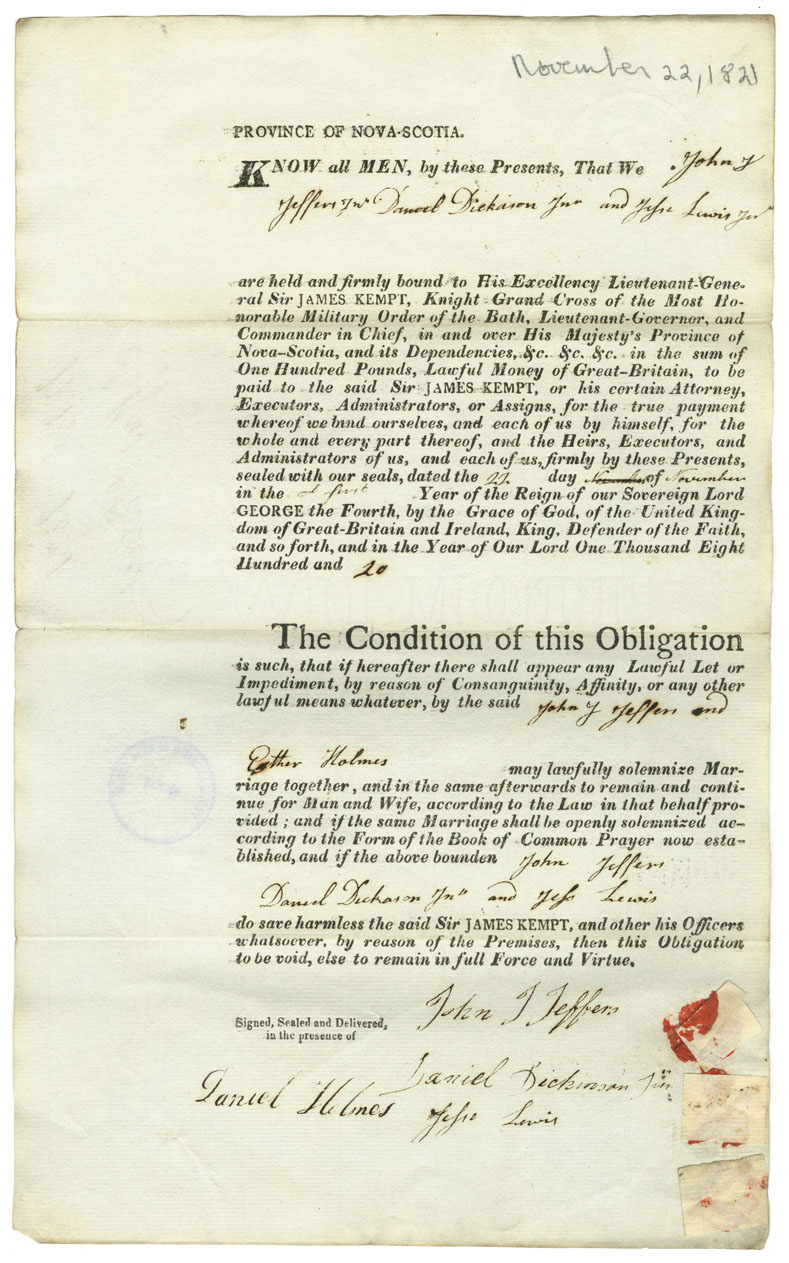 November 22, 1821
PROVINCE OF NOVA-SCOTIA.
KNOW all MEN, by these Presents, That We John J
Jeffers Jnr Daniel Dickason Jnr and Jesse Lewis Jnr
are held and firmly bound to His Excellency Lieutenant-Gene-
ral Sir JAMES KEMPT, Knight Grand Cross of the Most Ho-
norable Military Order of the Bath, Lieutenant-Governor, and
Commander in Chief, in and over His Majesty's Province of
Nova-Scotia, and its Dependencies, &c. &c. &c. in the sum of
One Hundred Pounds, Lawful Money of Great-Britain, to be
paid to the said Sir JAMES KEMPT, or his certain Attorney,
Executors, Administrators, or Assigns, for the true payment
whereof we bind ourselves, and each of us by himself, for the
whole and every part thereof, and the Heirs, Executors, and
Administrators of us, and each of us, firmly by these Presents,
sealed with our seals, dated the 22 day November of November
in the first Year of the Reign of our Sovereign Lord
GEORGE the Fourth, by the Grace of God, of the United King-
dom of Great-Britain and Ireland, King, Defender of the Faith,
and so forth, and in the Year of Our Lord One Thousand Eight
Hundred and 20
The Condition of this Obligation
is such, that if hereafter there shall appear any Lawful Let or
Impediment, by reason of Consanguinity, Affinity, or any other
lawful means whatever, by the said John J Jeffers and
Esther Holmes may lawfully solemnize Mar-
riage together, and in the same afterwards to remain and conti-
nue for Man and Wife, according to the Law in that behalf pro-
vided; and if the same Marriage shall be openly solemnized ac-
cording to the Form of the Book of Common Prayer now esta-
blished, and if the above bounden John Jeffers
Daniel Dickason Jnr and Jess Lewis
do save harmless the said Sir JAMES KEMPT, and other his Officers
whatsoever, by reason of the Premises, then this Obligation
to be void, else to remain in full Force and Virtue.
John J Jeffers
Signed, Sealed and Delivered,
in the presence of
Daniel Dickinson Jun
Daniel Holmes
Jesse Lewis